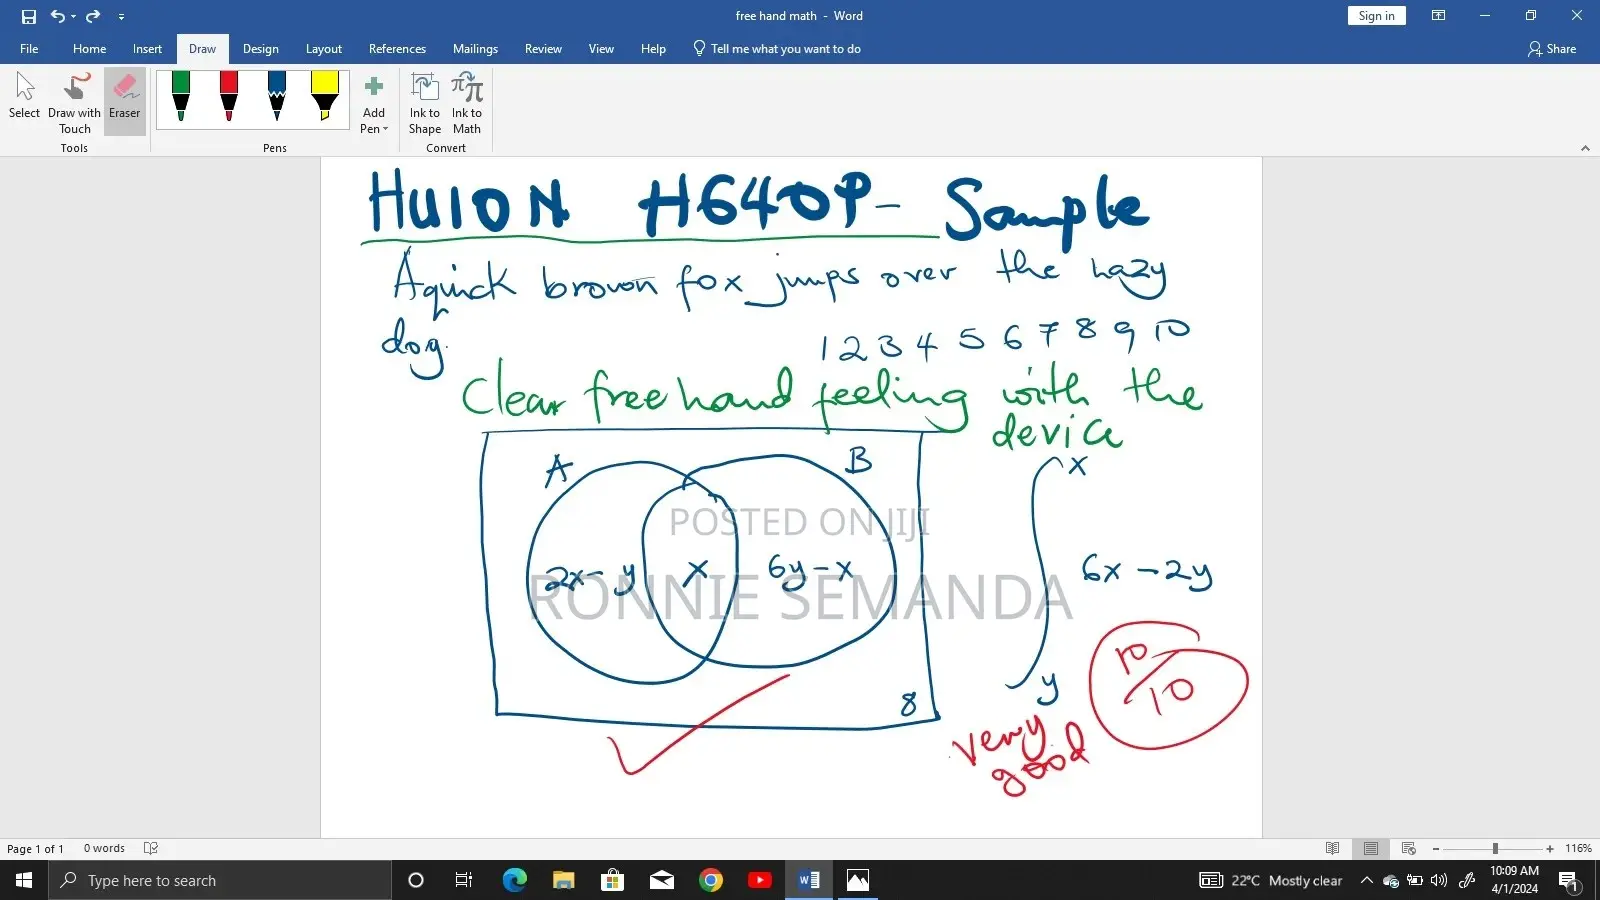 free hand math - Word
Sign in
File Home Insert Draw Design Layout References Mailings Review View Help Tell me what you want to do Share
Select Draw with Touch Eraser Add Pen Ink to Shape Ink to Math
Tools Pens Convert
HUION H640P - Sample
A quick brown fox jumps over the lazy
dog.
1 2 3 4 5 6 7 8 9 10
Clear free hand feeling with the
device
A B x
POSTED ON JIJI
2x - y x 6y - x 6x - 2y
RONNIE SEMANDA
10/10
y
8
very
good
Page 1 of 1 0 words 116%
Type here to search 22°C Mostly clear 10:09 AM
4/1/2024
1